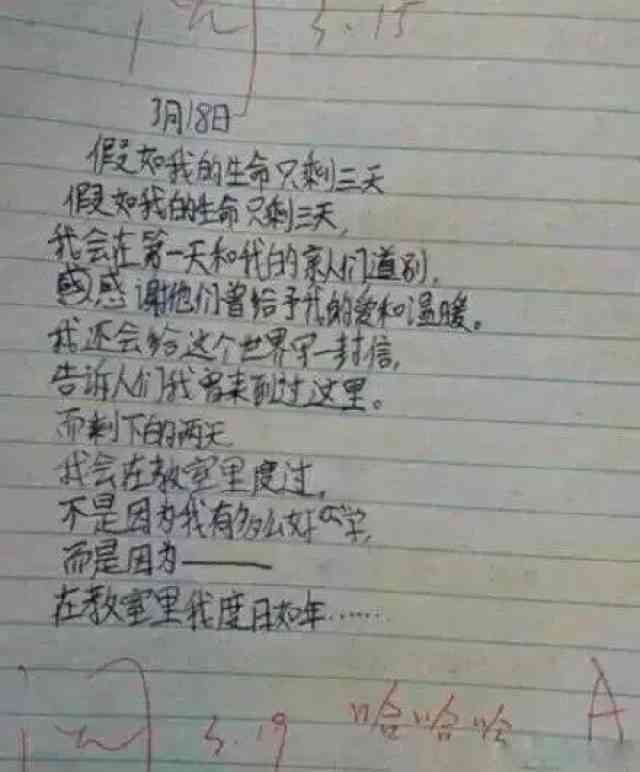 阅 3.15
3月18日
假如我的生命只剩三天
假如我的生命只剩三天,
我会在第一天和我的亲人们道别,
感谢他们曾给予我的爱和温暖。
我还会给这个世界写一封信,
告诉人们我曾来到过这里。
而剩下的两天
我会在教室里度过,
不是因为我有多么好学,
而是因为——
在教室里我度日如年……
阅 3.19 哈哈哈 A